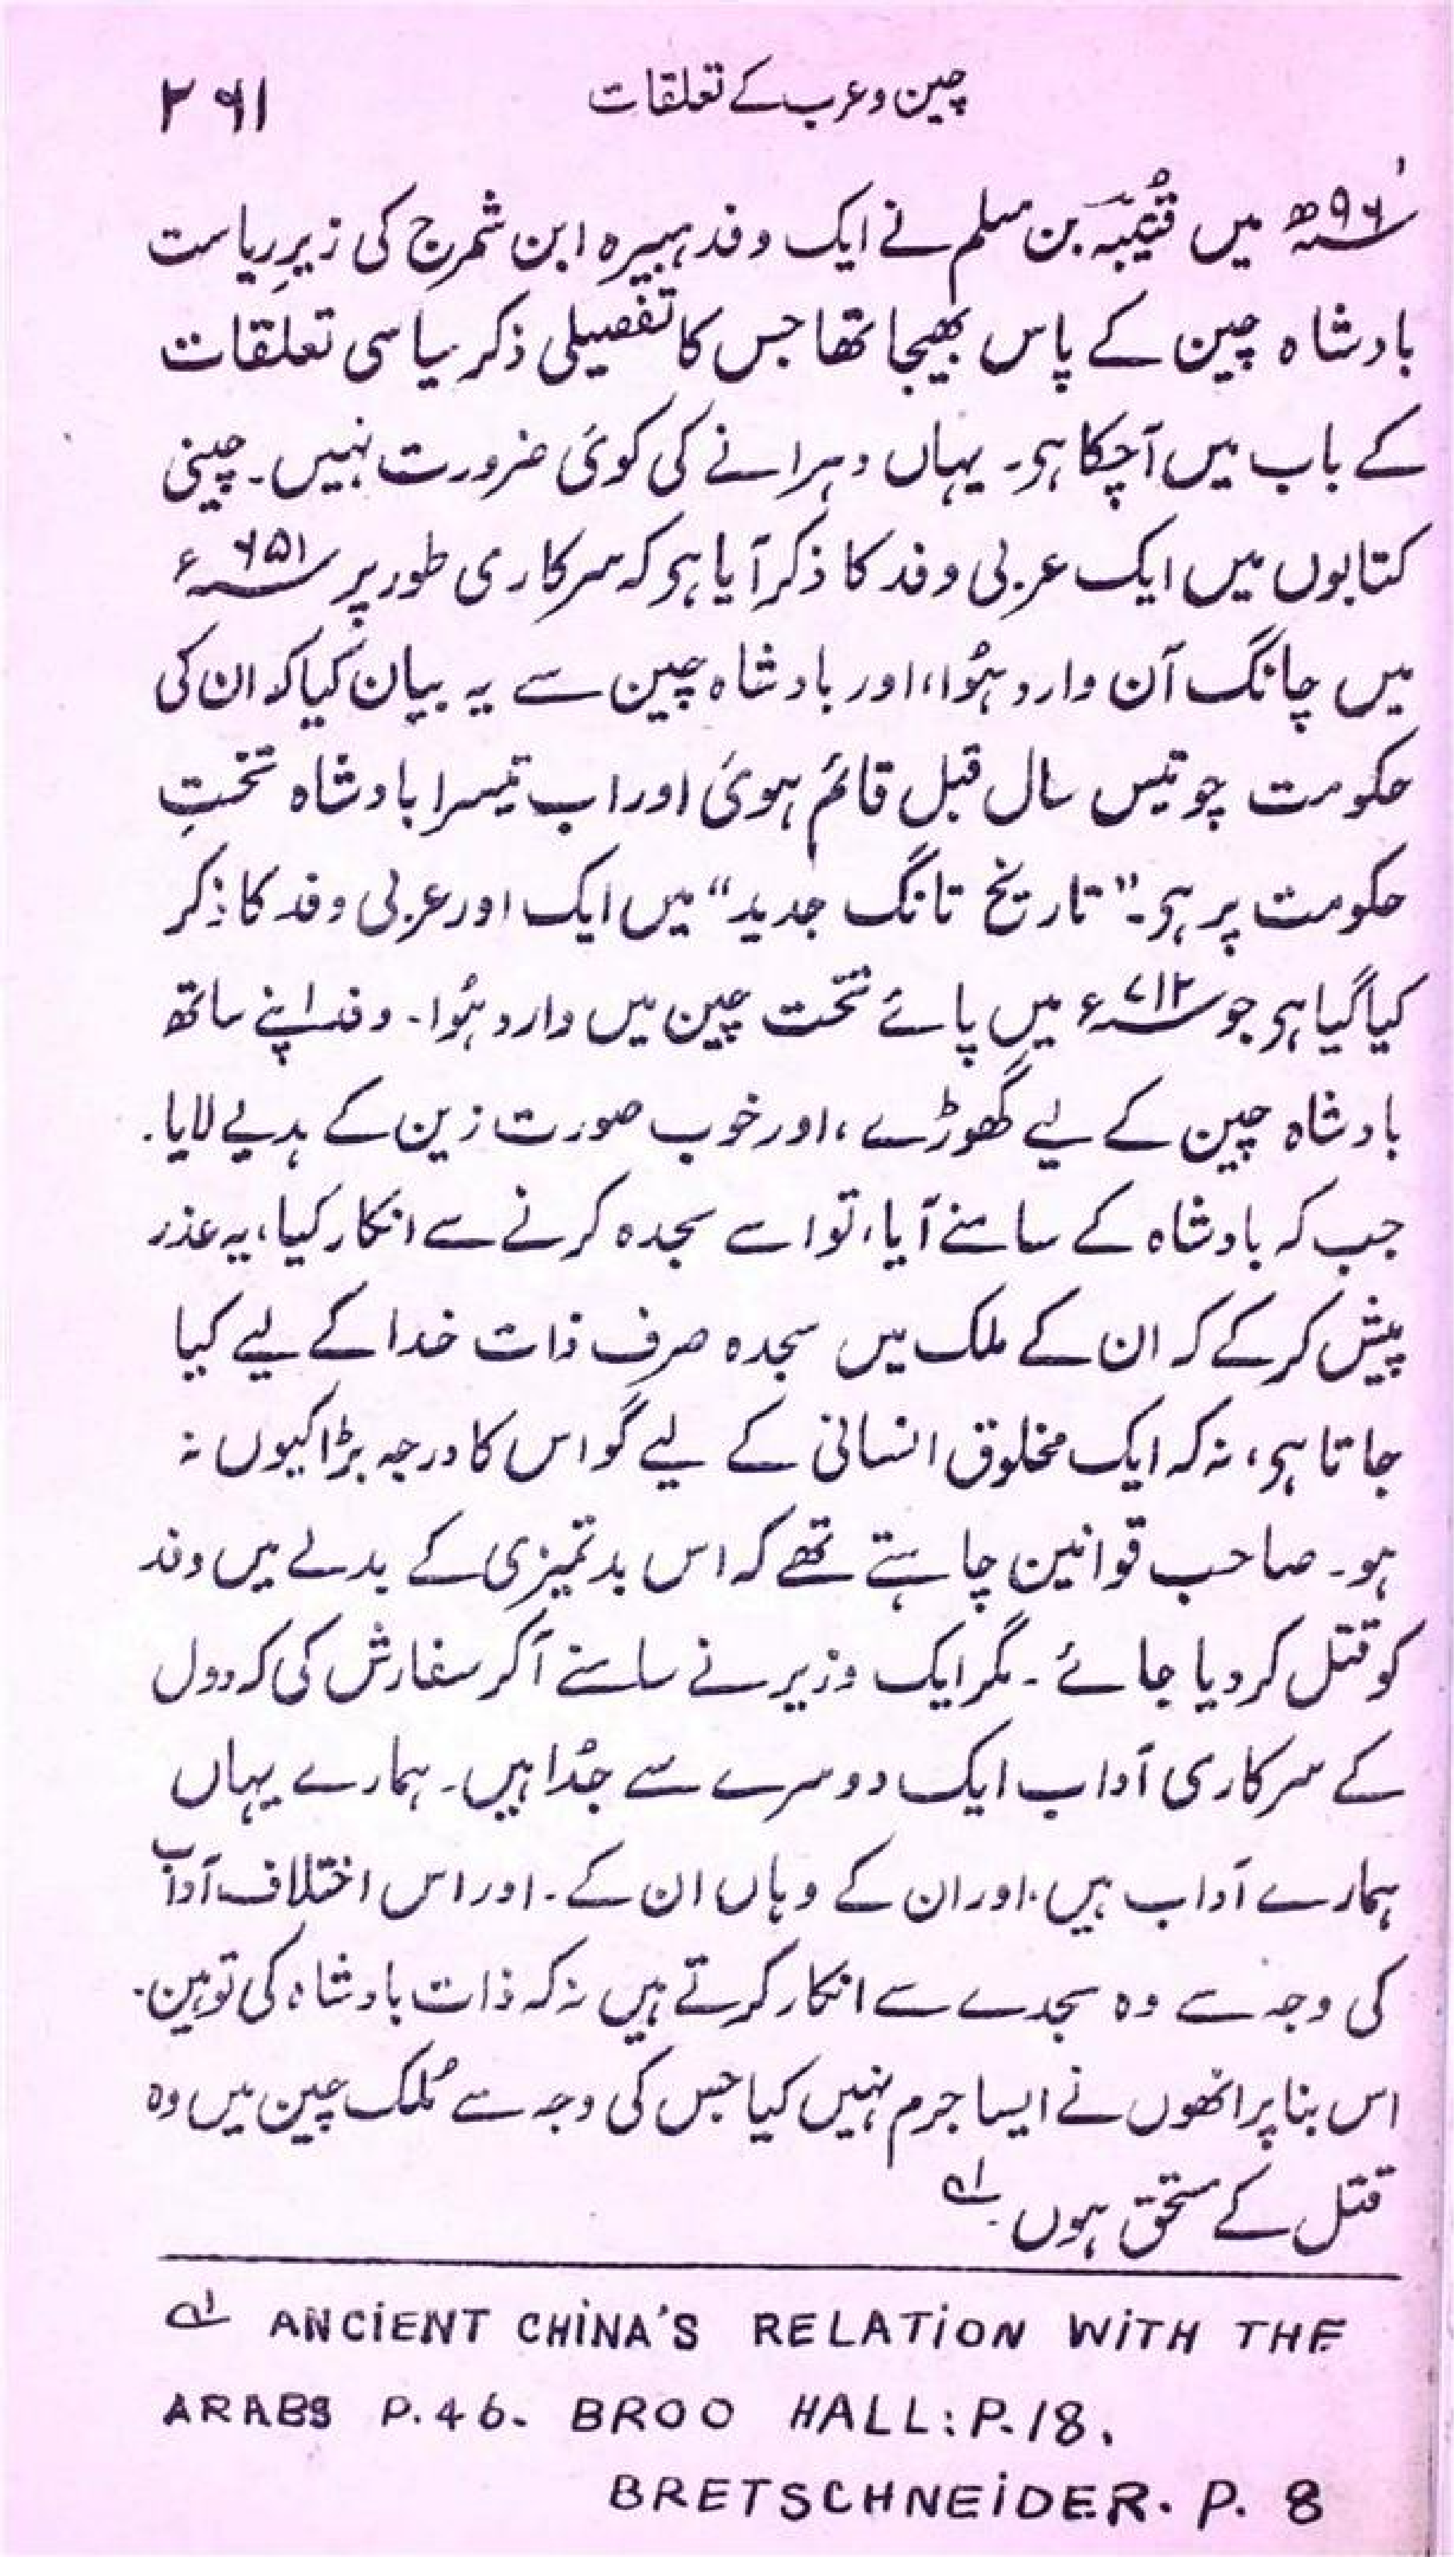 چین و عرب کے تعلقات ۲۶۱
۹۶ھ میں قُتَیبہ بن مسلم نے ایک وفد ہبیرہ ابن شمرج کی زیرِ ریاست
بادشاہ چین کے پاس بھیجا تھا جس کا تفصیلی ذکر سیاسی تعلقات
کے باب میں آچکا ہی۔ یہاں دہرانے کی کوئ ضرورت نہیں۔ چینی
کتابوں میں ایک عربی وفد کا ذکر آیا ہی کہ سرکاری طور پر ۶۵۱ء
میں چانگ آن وارد ہُوا، اور بادشاہ چین سے یہ بیان کیا کہ ان کی
حکومت چوتیس سال قبل قائم ہوئ اور اب تیسرا بادشاہ تختِ
حکومت پر ہی۔ "تاریخ تانگ جدید" میں ایک اور عربی وفد کا ذکر
کیا گیا ہی جو ۷۱۲ء میں پائے تخت چین میں وارد ہُوا۔ وفد اپنے ساتھ
بادشاہ چین کے لیے گھوڑے، اور خوب صورت زین کے ہدیے لایا۔
جب کہ بادشاہ کے سامنے آیا، تو اسے سجدہ کرنے سے انکار کیا، یہ عذر
پیش کرکے کہ ان کے ملک میں سجدہ صرف ذات خدا کے لیے کیا
جاتا ہی، نہ کہ ایک مخلوق انسانی کے لیے گو اس کا درجہ بڑا کیوں نہ
ہو۔ صاحب قوانین چاہتے تھے کہ اس بدتمیزی کے بدلے میں وفد
کو قتل کر دیا جائے۔ مگر ایک وزیر نے سامنے آکر سفارش کی کہ دول
کے سرکاری آداب ایک دوسرے سے جُدا ہیں۔ ہمارے یہاں
ہمارے آداب ہیں۔ اور ان کے وہاں ان کے۔ اور اس اختلاف آداب
کی وجہ سے وہ سجدے سے انکار کرتے ہیں نہ کہ ذات بادشاہ کی توہین۔
اس بنا پر انھوں نے ایسا جرم نہیں کیا جس کی وجہ سے مُلک چین میں وہ
قتل کے مستحق ہوں۔ ؂۱
؂۱ ANCIENT CHINA'S RELATION WITH THE
ARABS P.46. BROO HALL: P.18.
BRETSCHNEIDER. P. 8